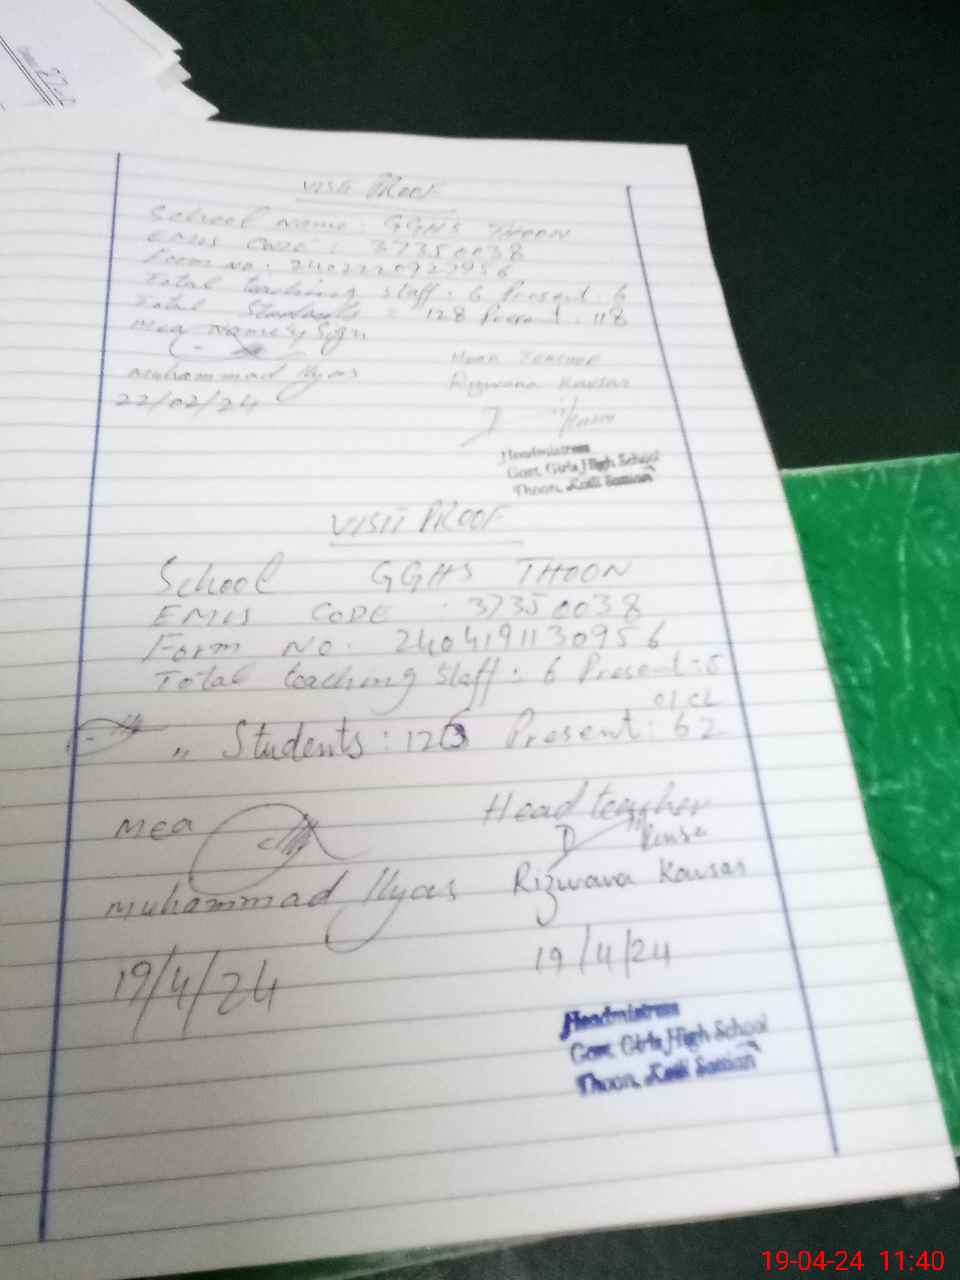 VISIT PROOF
School Name: GGHS THOON
EMIS CODE: 37350038
Form No: 2402220927956
Total teaching staff: 6 Present: 6
Total Students = 128 Present: 118
Mea Name & Sign
Head Teacher
Muhammad Ilyas
Rizwana Kausar
22/02/24
Headmistress
Govt. Girls High School
Thoon,
VISIT PROOF
School GGHS THOON
EMIS CODE : 37350038
Form No. 2404191130956
Total teaching Staff: 6 Present: 5
01 CL
" Students: 126 Present: 62
Mea
Head teacher
Muhammad Ilyas
Rizwana Kausar
19/4/24
19/4/24
Headmistress
Govt. Girls High School
Thoon,
19-04-24 11:40